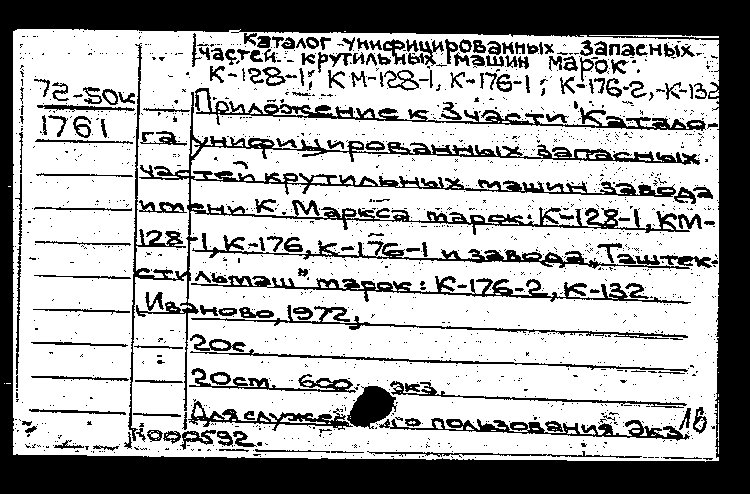 Каталог унифицированных запасных
частей крутильных машин марок
К-128-1; КМ-128-1, К-176-1; К-176-2, К-132
72-50к
1761
Приложение к 3 части "Катало-
га унифицированных запасных
частей крутильных машин завода
имени К. Маркса марок: К-128-1, КМ-
128-1, К-176, К-176-1 и завода „Таштек-
стильмаш" марок: К-176-2, К-132
Иваново, 1972,
20с.
20 ст. 600 экз.
Для го пользования. Экз. 18.
К000592.